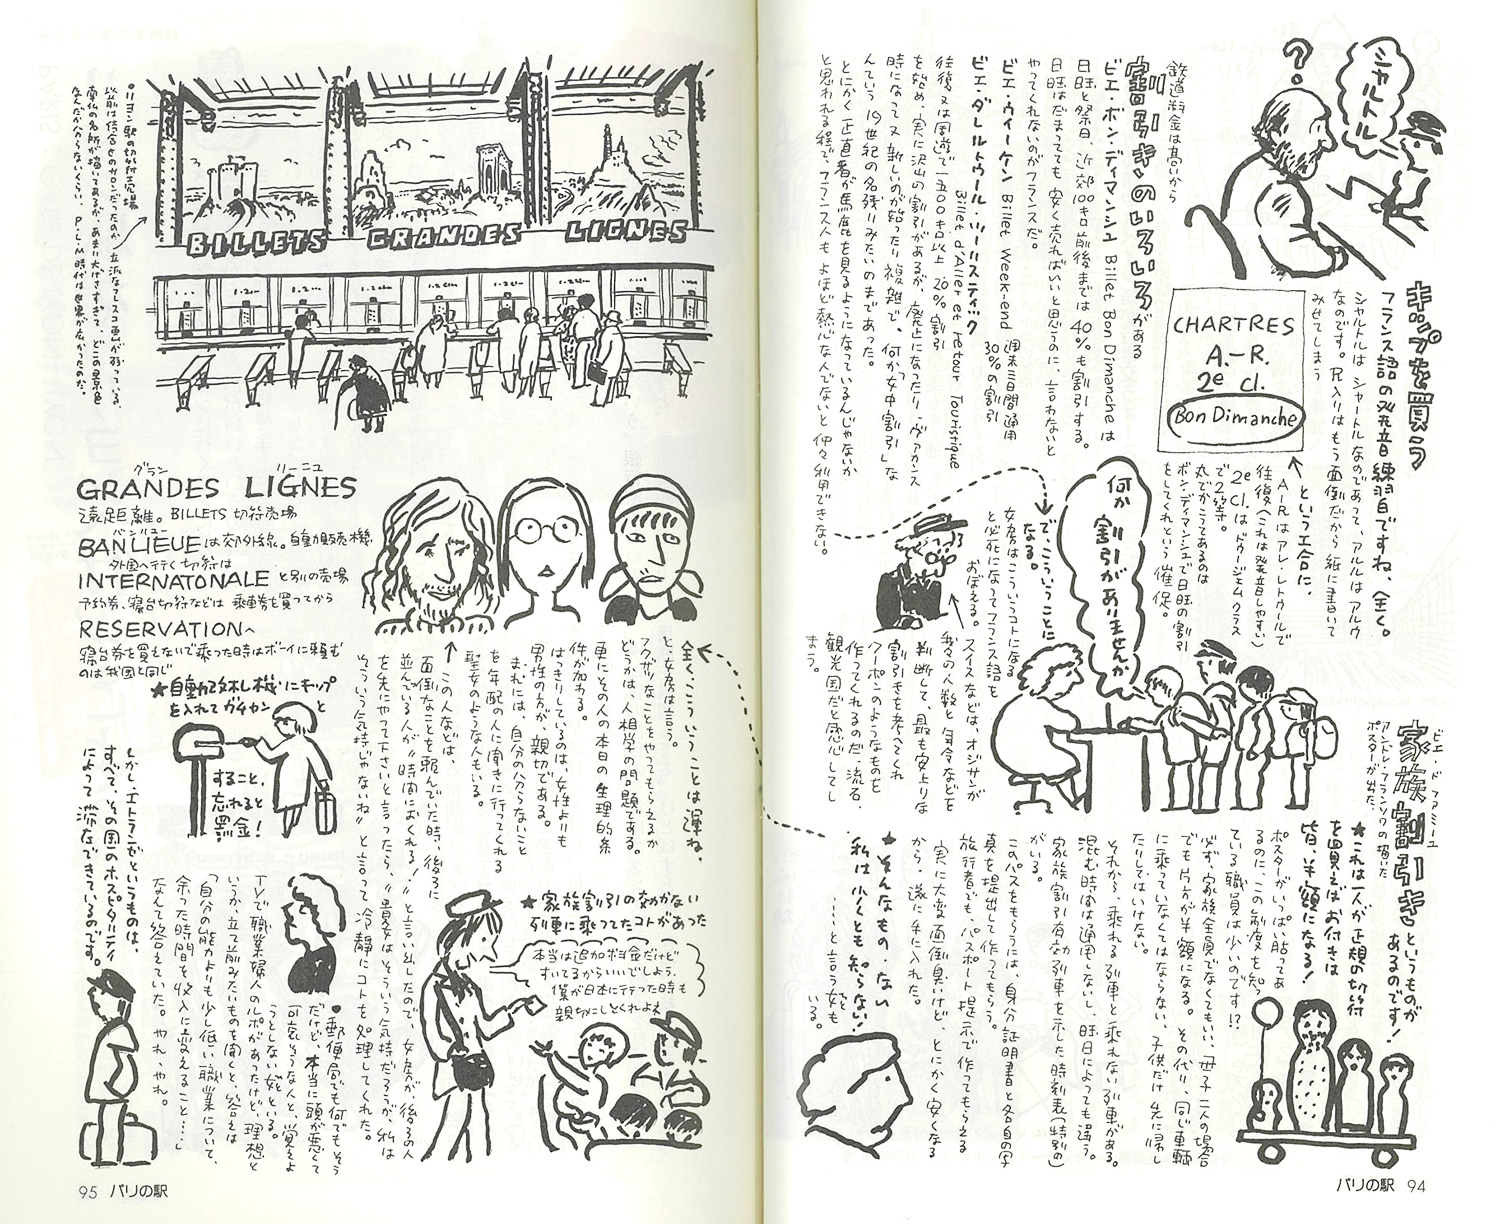 ?
シャルトル
キップを買う
フランス語の発音練習ですね、全く。
シャルトルは シャートルなのであって、アルルは アルウ
なのです。尻入りはもう面倒だから紙に書いて
みせてしまう
CHARTRES
A.-R.
2e Cl.
Bon Dimanche
という工合に、
A-Rは アレ・レトゥールで
往復(これは発音しやすい)
2e Cl.は ドゥージエムクラス
で2等。
丸でかこうてあるのは
ボン・ディマンシュで日旺の割引
をしてくれという催促。
鉄道料金は高いから
割引きのいろいろがある
ビエ・ボン・ディマンシュ Billet Bon Dimanche は
日旺と祭日、近郊100キロ前後までは 40%も割引する。
日旺はだまってても 安く売ればいいと思うのに、言わないと
やってくれないのがフランスだ。
ビエ・ウィーケン Billet Week-end 週末三日間通用
30%の割引
ビエ・ダレルトゥール・ツーリスティック
Billet d'Aller et retour Touristique
往復又は周遊で一五〇〇キロ以上 20%割引
を始め、実に沢山の割引があるが、廃止になったり・ヴァカンス
時になって又 新しいのが始ったり複雑で、何か「女中割引」な
んていう 19世紀の名残りみたいのまであった。
とにかく正直者が馬鹿を見るようになっているんじゃないか
と思われる程で、フランス人も よほど熱心なんでないと 仲々利用できない。
で、こういうことに
なる。
何か
割引がありませんか
女房はこういうコトになる
と必死になってフランス語を
おぼえる。
スイスなどは、オジサンが
我々の人数と年令などを
判断して、最も安上りな
割引きを考えてくれ
クーポンのようなものを
作ってくれるのだ、流石、
観光国だと感心してし
まう。
ビエ・ド・ファミーユ
家族割引き というものが
あるのです!
アンドレ・フランソワの描いた
ポスターが出た。
★これは一人が正規の切符
を買えばお付きは
皆、半額になる!
ポスターがいっぱい貼ってあ
るのに、この制度を知っ
ている職員は少いのです!?
必ず、家族全員でなくてもいい、母子二人の場合
でも片方が半額になる。その代り、同じ車輌
に乗っていなくてはならない、子供だけ先に帰し
たりしてはいけない。
それから、乗れる列車と乗れない列車がある。
混む時間は通用しないし、時日によっても違う。
家族割引有効列車を示した時刻表(特別の)
がいる。
このパスをもらうには、身分証明書と各自の写
真を提出して作ってもらう。
旅行者でも、パスポート提示で作ってもらえる
実に大変面倒臭いけど、とにかく安くなる
から、遂に手に入れた。
★そんなもの、ない
私は少くとも知らない!
……と言う女も
いる。
パリの駅 94
●リヨン駅の切符売場
以前は待合せのサロンだったのか 立派なフレスコ画が残っている。
南仏の名所が描いてあるが、あまり大げさすぎて、どこの景色
なんだか分らないくらい。P.L.M時代は世界が広かったのだ。
BILLETS GRANDES LIGNES
グラン リーニュ
GRANDES LIGNES
遠距離。BILLETS 切符売場
バンリユー
BANLIEUE は郊外線。自動販売機
外国へ行く切符は
INTERNATONALE と別の売場
予約券、寝台切符などは 乗車券を買ってから
RESERVATIONへ
寝台券を買えないで乗った時はボーイに頼むも
のは我国と同じ
★自動改札し機にキップ
を入れてガチャンと
すること、
忘れると
罰金!
全く、こういうことは運ね、
と、女房は言う。
フクザツなことをやってもらえるか
どうかは、人相学の問題である。
更にその人の本日の生理的条
件が加わる。
はっきりしているのは、女性よりも
男性の方が、親切である。
まれには、自分の分らないこと
を年配の人に聞きに行ってくれる
聖女のような人もいる。
この人などは、
面倒なことを頼んでいた時、後ろに
並んでいる人が“時間におくれる!”と言い出したので、女房が、後ろの人
を先にやって下さいと言ったら、“貴女はそういう気持だろうが、私は
そういう気持じゃないね”と言って 冷静にコトを処理してくれた。
★家族割引の効かない
列車に乗ってたコトがあった
本当は追加料金だけど
すいてるからいいでしょう。
僕が日本に行った時も
親切にしとくれよネ
●郵便局でも何でもそう
だけど、本当に頭が悪くて
可哀そうな人と、覚えよ
うとしない奴といる。
TVで職業婦人のルポがあったけど、理想と
いうか、立て前みたいものを聞くと、答えは
「自分の能力よりも少し低い職業について、
余った時間を収入に変えること……」
なんて答えていた。やれやれ。
しかし、エトランゼというものは、
すべて、その国のホスピタリティ
によって 滞在できているのです。
95 パリの駅